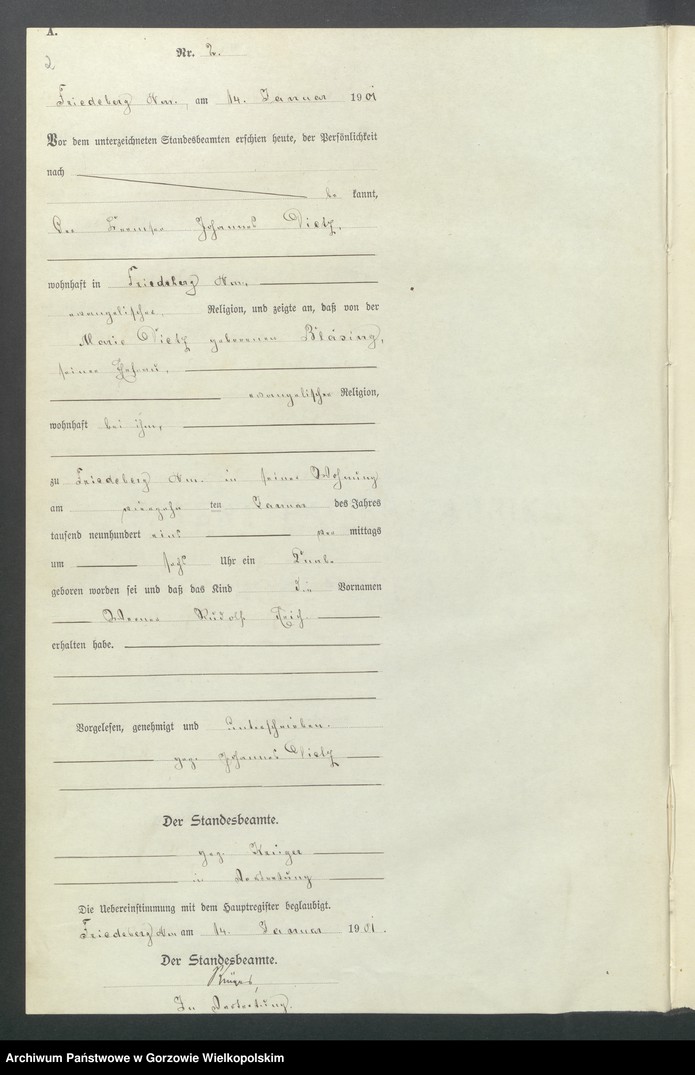 A.
2
Nr. 2.
Friedeberg Nm., am 14. Januar 1901
Vor dem unterzeichneten Standesbeamten erschien heute, der Persönlichkeit
nach
be kannt,
der Johannes Dietz,
wohnhaft in Friedeberg Nm.
evangelischer Religion, und zeigte an, daß von der
Marie Dietz geborenen Bläsing,
seiner Ehefrau,
evangelischer Religion,
wohnhaft bei ihm,
zu Friedeberg Nm. in seiner Wohnung
am vierzehn ten Januar des Jahres
tausend neunhundert eins vor mittags
um sechs Uhr ein Knabe
geboren worden sei und daß das Kind die Vornamen
Werner Rudolf Erich
erhalten habe.
Vorgelesen, genehmigt und unterschrieben.
gez. Johannes Dietz
Der Standesbeamte.
gez. Krüger
in Vertretung
Die Uebereinstimmung mit dem Hauptregister beglaubigt.
Friedeberg Nm am 14. Januar 1901.
Der Standesbeamte.
Krüger,
In Vertretung.
Archiwum Państwowe w Gorzowie Wielkopolskim